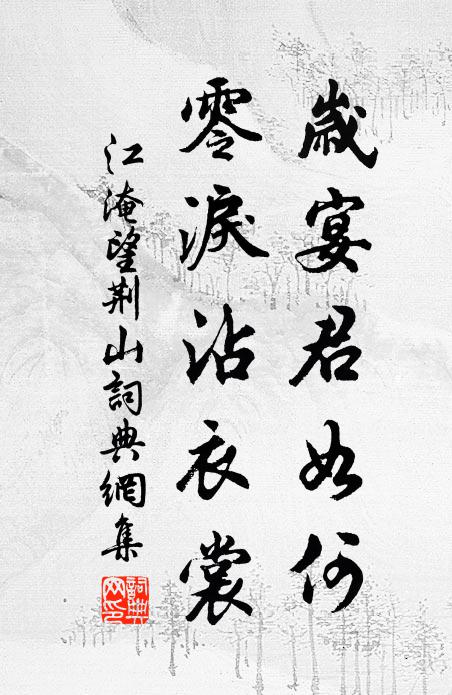 歲宴君如何
零淚沾衣裳
江淹望荆山詞典網集
詞典网印